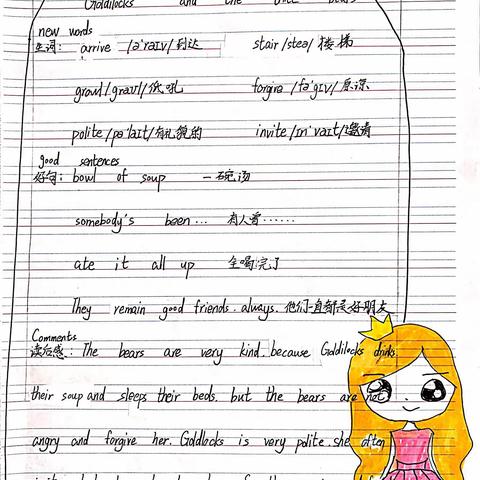 Goldilocks and the three bears
new words
生词: arrive /ə'raɪv/到达 stair/steə/楼梯
growl/graʊl/低吼 forgive/fə'gɪv/原谅
polite/pə'laɪt/有礼貌的 invite/ɪn'vaɪt/邀请
good sentences
好句: bowl of soup 一碗汤
somebody's been... 有人曾……
ate it all up 全喝完了
They remain good friends. always. 他们一直都是好朋友
Comments
读后感: The bears are very kind. because Goldilocks drinks
their soup and sleeps their beds. but the bears are not
angry and forgive her. Goldlocks is very polite. she often